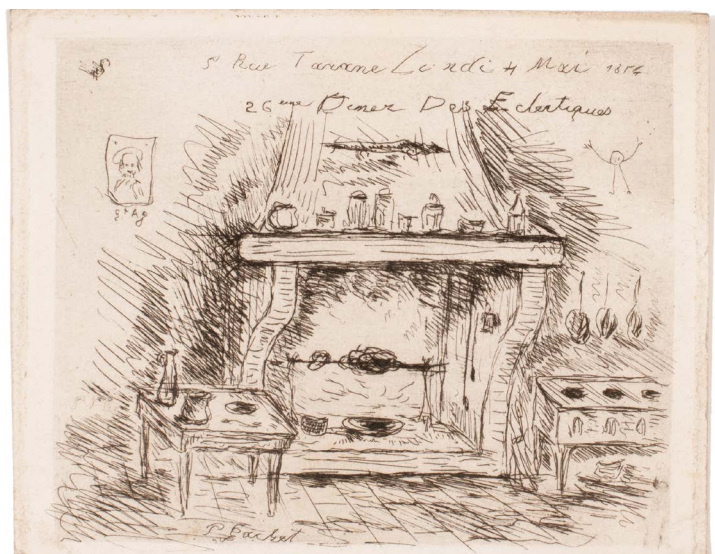 5 Rue Taranne Lundi 4 Mai 1874
26eme Diner Des Eclectiques
P. Gachet